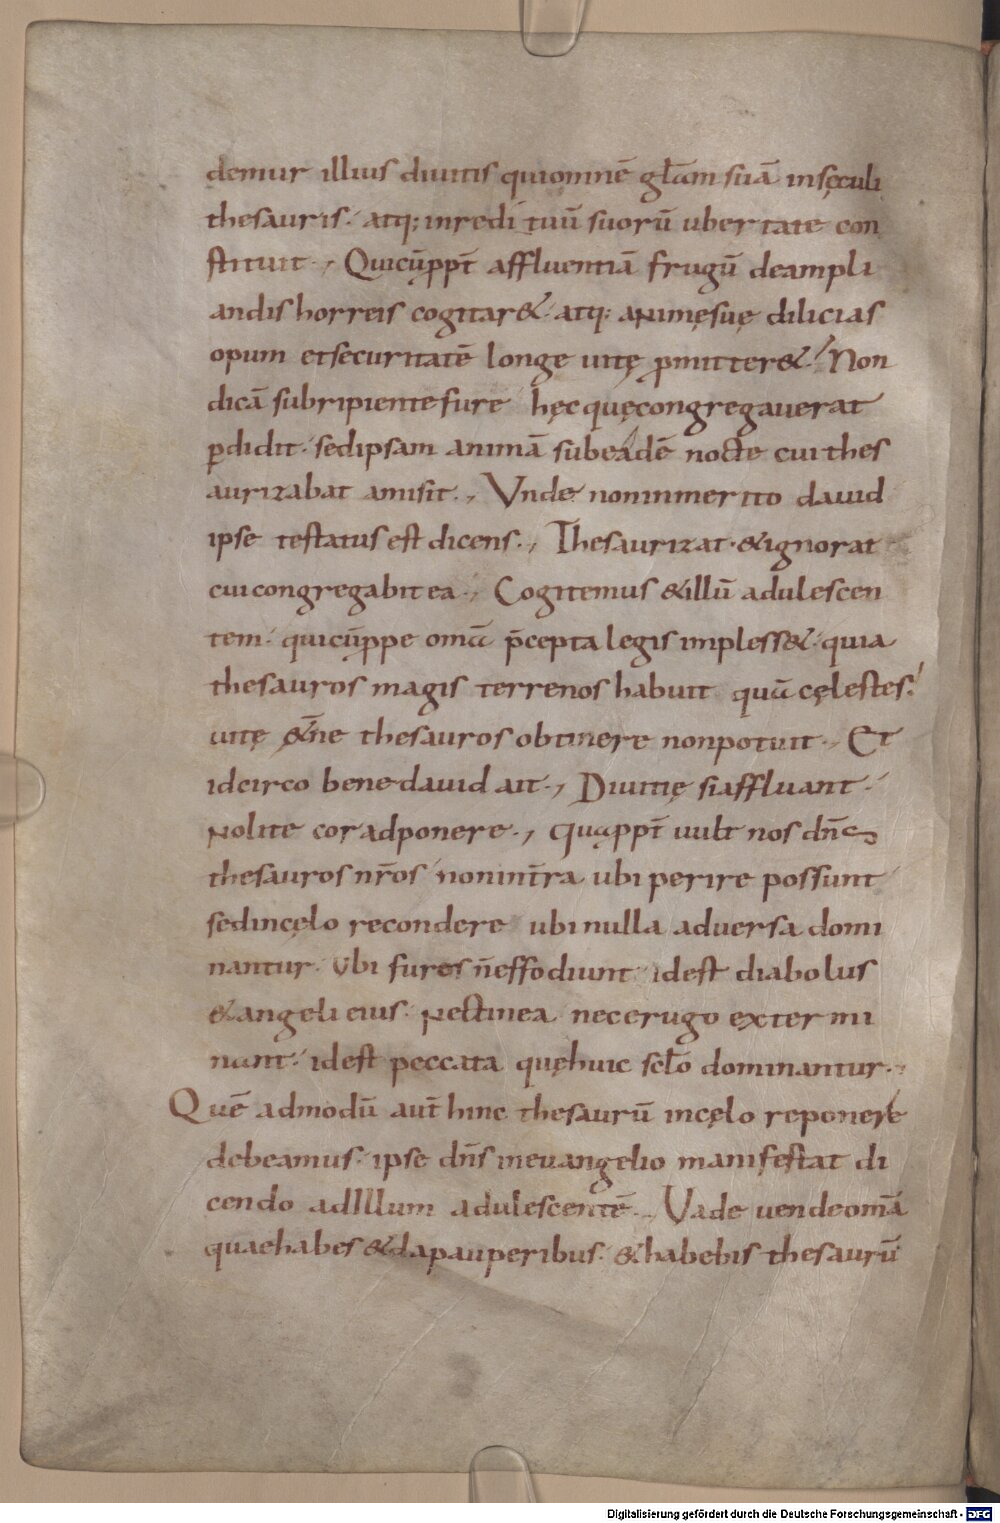 demur illius diuitis quiomnē gl̄am suā insęculi
thesauris· atq; inredi tuū suorū ubertate con
stituit·, Quicūppt̄ affluentiā frugū deampli
andis horreis cogitar&· atq; animęsuę dilicias
opum etsecuritatē longe uitę p̄mitter&·! Non
dicā subripientefure hęc quęcongregauerat
ꝑdidit· sedipsam animā subeadē nocte cui thes
aurizabat amisit·, Vnde noninmerito dauid
ipse testatus est dicens·, Thesaurizat·&ignorat
cui congregabit ea·, Cogitemus &illū adulescen
tem· quicūppe omā p̄cepta legis impless&· quia
thesauros magis terrenos habuit quā cęlestes·!
uitę &̄ne thesauros obtinere nonpotuit·, Et
idcirco bene dauid ait·, Diuitię siaffluant·
Nolite cor adponere·, quappt̄ uult nos dn̄c
thesauros nr̄os nonint̄ra ubi perire possunt
sedincęlo recondere ubi nulla aduersa domi
nantur· Vbi fures n̄effodiunt idest diabolus
&angeli eius· Nectinea necerugo extermi
nant· idest peccata quęhuic scl̄o dominantur·,
Quē admodū aut̄ hinc thesaurū incęlo reponere
debeamus· ipse dn̄s ineuangelio manifestat di
cendo adIllum adulescentē·, Vade uendeomā
quaehabes &dapauperibus· &habebis thesaurū
Digitalisierung gefördert durch die Deutsche Forschungsgemeinschaft - DFG